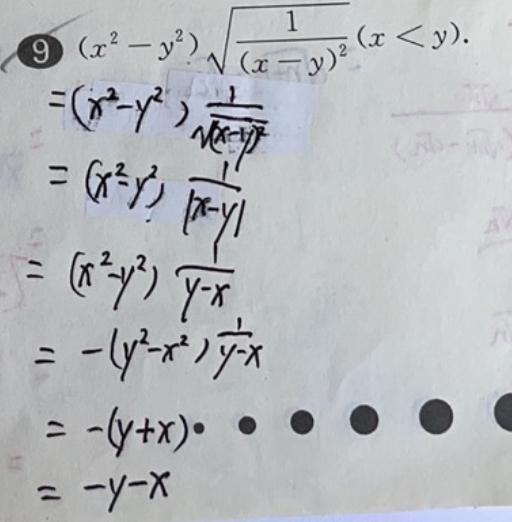 9 (x² − y²) √(1/(x − y)²) (x < y).
= (x²−y²) 1/√(x−y)²
= (x²−y²) 1/|x−y|
= (x²−y²) 1/(y−x)
= −(y²−x²) 1/(y−x)
= −(y+x)
= −y−x